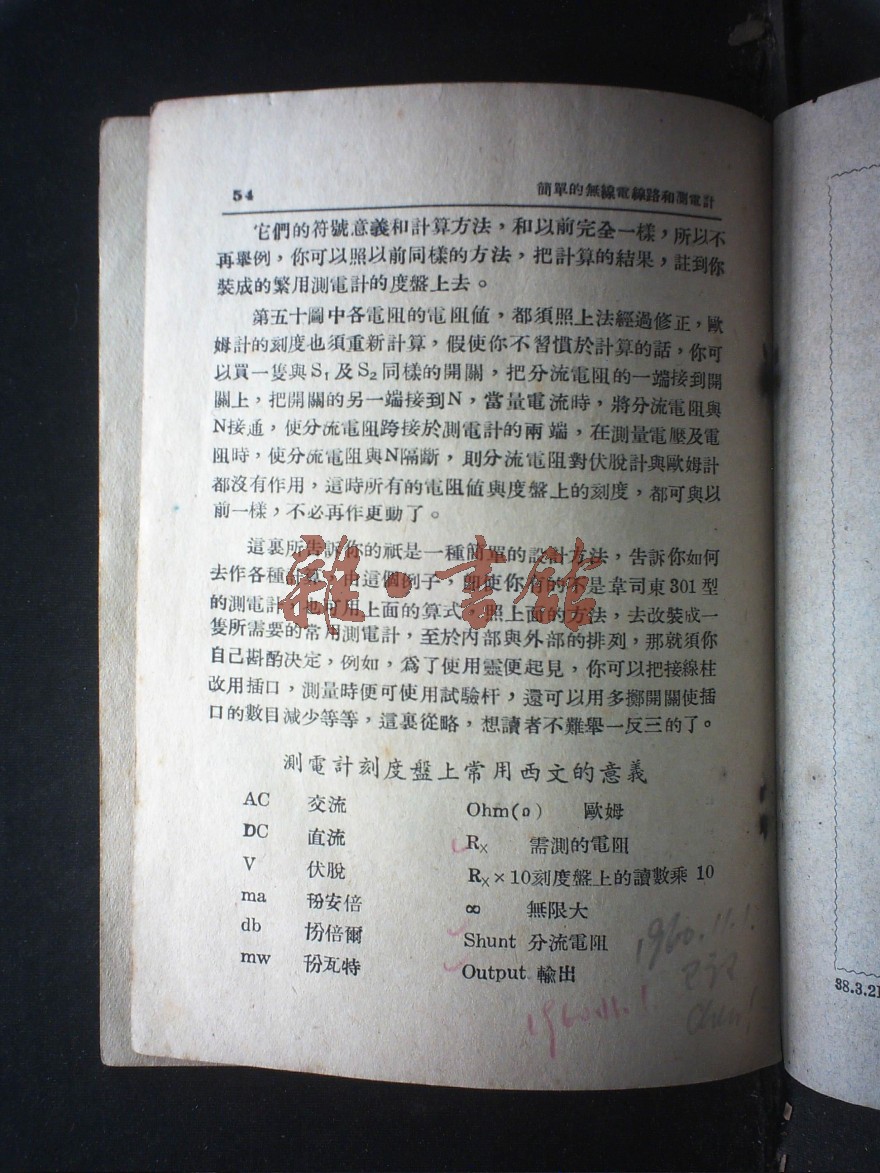 54
簡單的無線電線路和測電計
它們的符號意義和計算方法，和以前完全一樣，所以不
再舉例，你可以照以前同樣的方法，把計算的結果，註到你
裝成的繁用測電計的度盤上去。
第五十圖中各電阻的電阻値，都須照上法經過修正，歐
姆計的刻度也須重新計算，假使你不習慣於計算的話，你可
以買一隻與S₁及S₂同樣的開關，把分流電阻的一端接到開
關上，把開關的另一端接到N，當量電流時，將分流電阻與
N接通，使分流電阻跨接於測電計的兩端，在測量電壓及電
阻時，使分流電阻與N隔斷，則分流電阻對伏脫計與歐姆計
都沒有作用，這時所有的電阻値與度盤上的刻度，都可與以
前一樣，不必再作更動了。
這裏所告訴你的祇是一種簡單的設計方法，告訴你如何
去作各種計算，由這個例子，卽使你有的不是韋司東301型
的測電計，也可用上面的算式，照上面的方法，去改裝成一
隻所需要的常用測電計，至於內部與外部的排列，那就須你
自己斟酌決定，例如，爲了使用靈便起見，你可以把接線柱
改用插口，測量時便可使用試驗杆，還可以用多擲開關使插
口的數目減少等等，這裏從略，想讀者不難舉一反三的了。
雜·書館
測電計刻度盤上常用西文的意義
AC 交流
DC 直流
V 伏脫
ma 安倍
db 倍爾
mw 瓦特
Ohm(Ω) 歐姆
Rx 需測的電阻
Rx×10刻度盤上的讀數乘 10
∞ 無限大
Shunt 分流電阻
Output 輸出
1960.11.1.
1960.11.1.
38.3.2